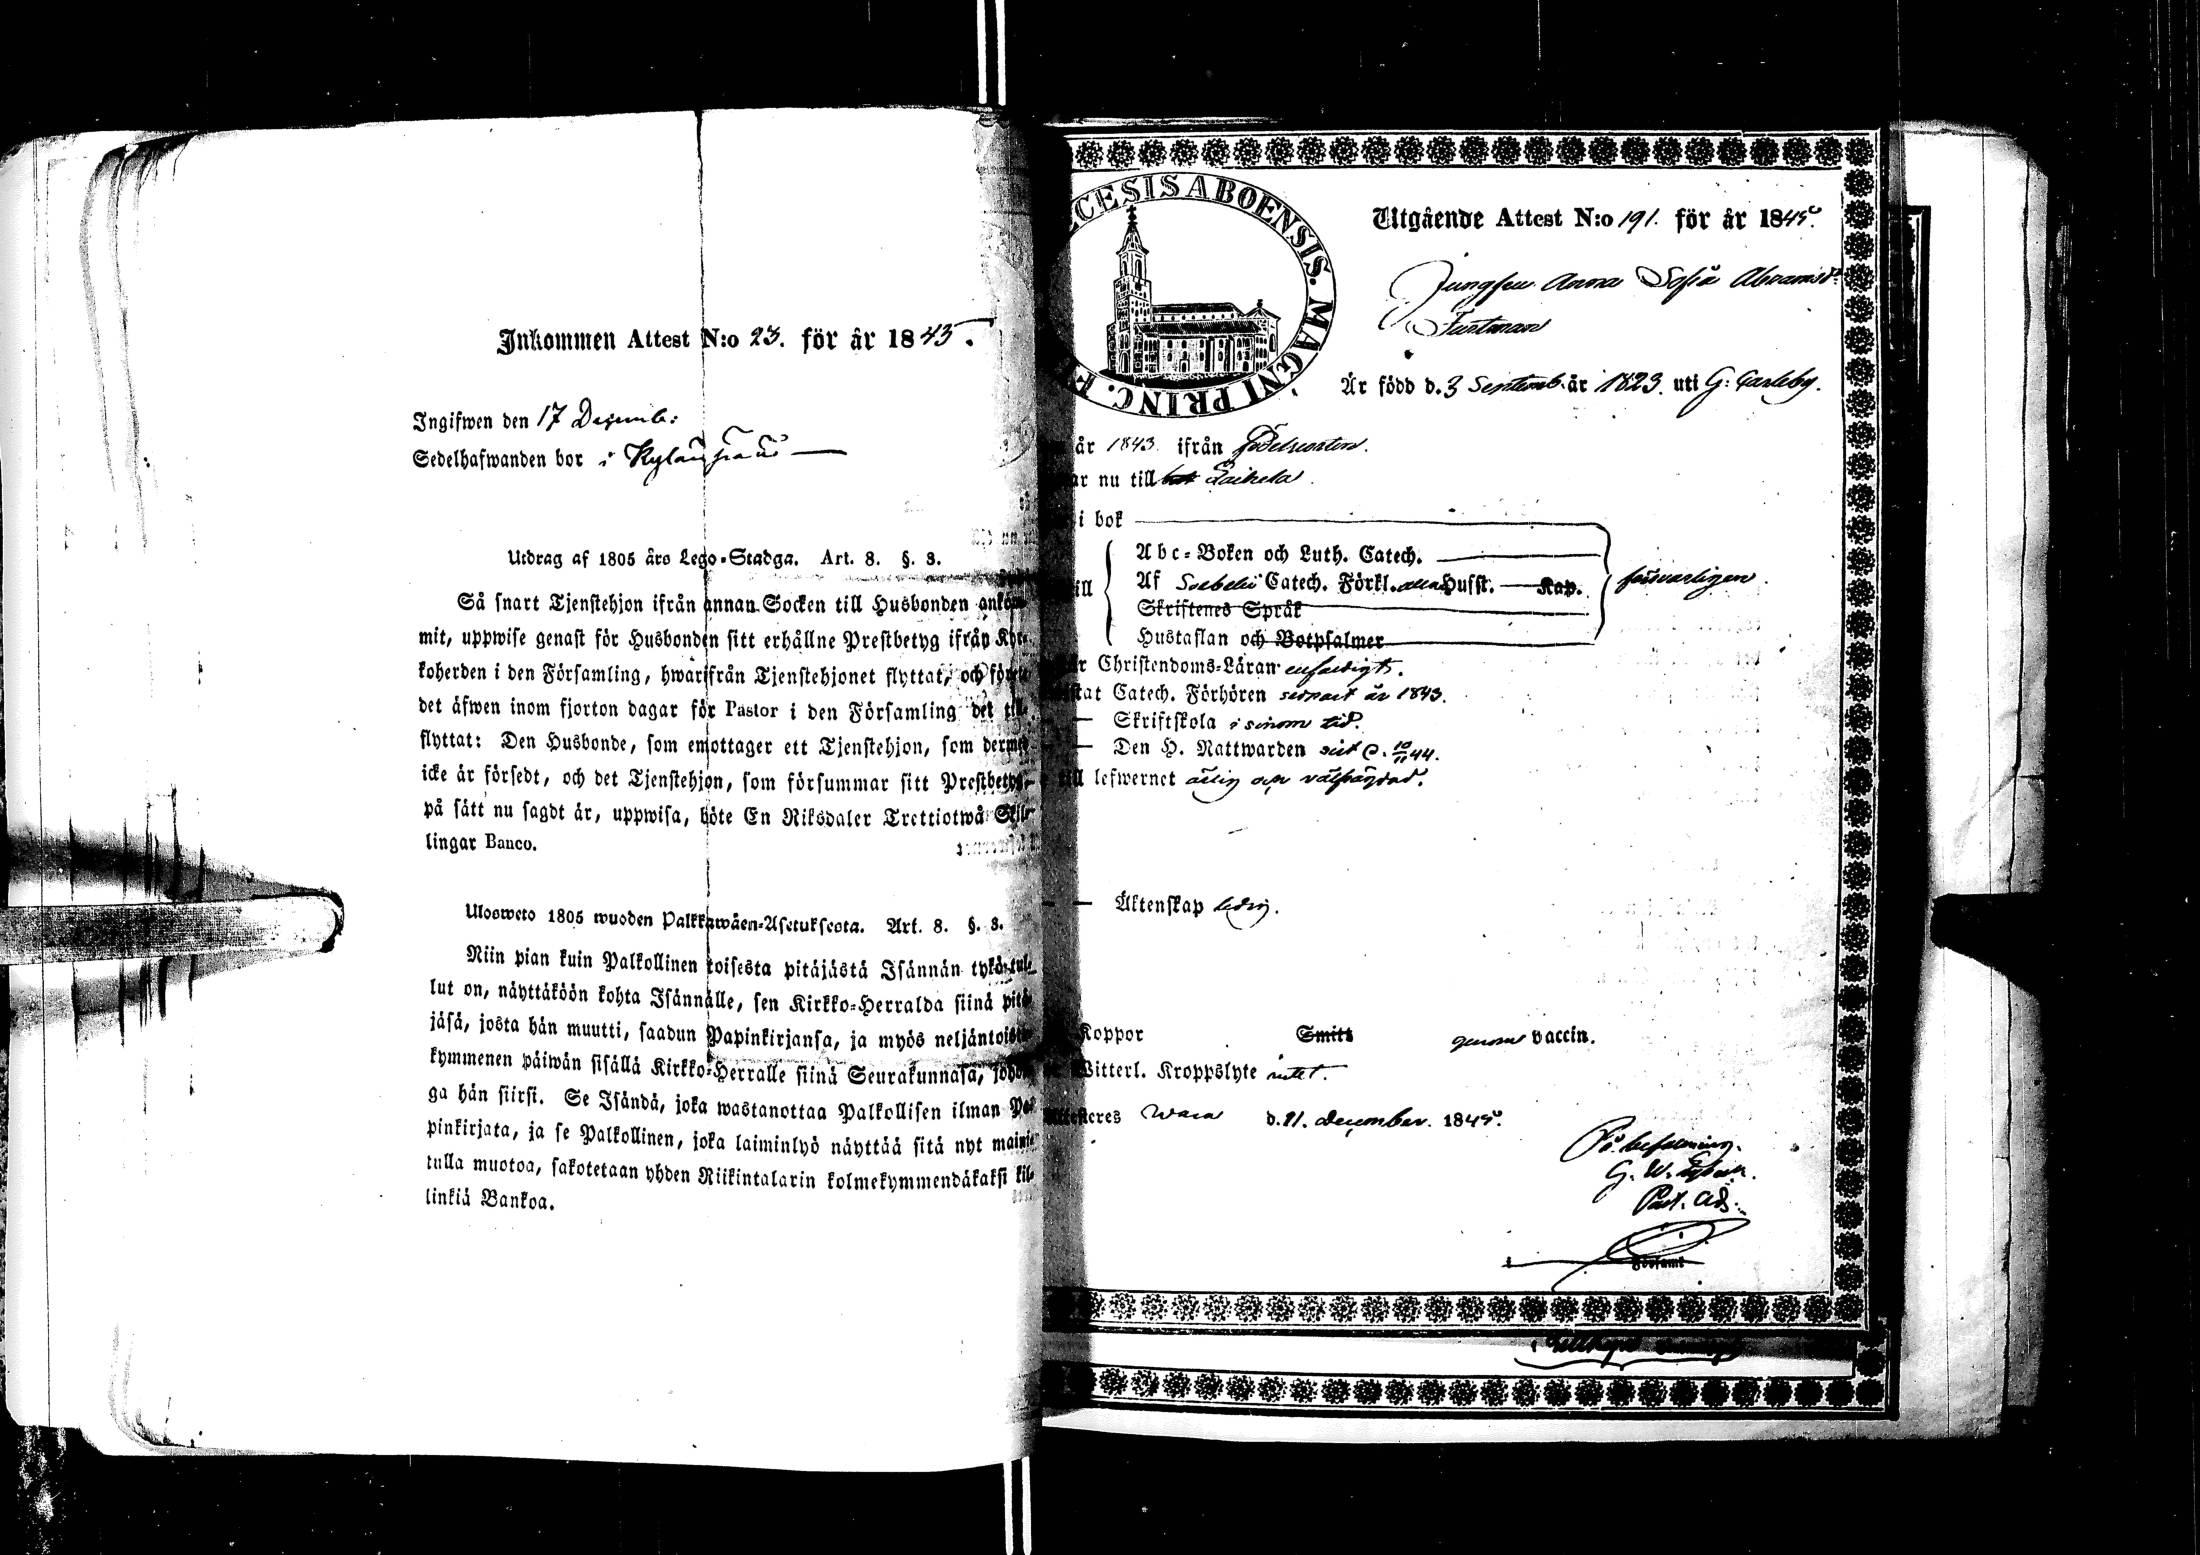 Inkommen Attest N:o 23. för år 1845.
Ingifwen den 17 Decemb:
Sedelhafwanden bor i
Utdrag af 1805 års Lego-Stadga. Art. 8. §. 3.
Så snart Tjenstehjon ifrån annan Socken till Husbonden ankom-
mit, uppwise genast för Husbonden sitt erhållne Prestbetyg ifrån Kyr-
koherden i den Församling, hwarifrån Tjenstehjonet flyttat, och förete
det äfwen inom fjorton dagar för Pastor i den Församling det till-
flyttat: Den Husbonde, som emottager ett Tjenstehjon, som dermed
icke är försedt, och det Tjenstehjon, som försummar sitt Prestbetyg,
på sätt nu sagdt är, uppwisa, böte En Riksdaler Trettiotwå Skil-
lingar Banco.
Ulosweto 1805 wuoden Palkkawäen-Asetuksesta. Art. 8. §. 3.
Niin pian kuin Palkollinen toisesta pitäjästä Isännän tykö tul-
lut on, näyttäköön kohta Isännälle, sen Kirkko-Herralda siinä pitä-
jäsä, josta hän muutti, saadun Papinkirjansa, ja myös neljäntoista-
kymmenen päiwän sisällä Kirkko-Herralle siinä Seurakunnasa, johon-
ga hän siirsi. Se Isändä, joka wastanottaa Palkollisen ilman Pa-
pinkirjata, ja se Palkollinen, joka laiminlyö näyttää sitä nyt maini-
tulla muotoa, sakotetaan yhden Riikintalarin kolmekymmendäkaksi kil-
linkiä Bankoa.
CESIS ABOENSIS. MAGNI PRINC. F
Utgående Attest N:o 191. för år 1845.
Jungfru Anna Sofia Abramsdr
Är född d. 3 Septemb. år 1823. uti G: Carleby.
år 1843 ifrån födelseorten.
ar nu till Laihela.
i bok
Abc-Boken och Luth. Catech.
ill Af Catech. Förkl. alla Husst. Kap. försvarligen.
Skriftenes Språk
Hustaflan och Botpsalmer
r Christendoms-Läran enfaldigt.
stat Catech. Förhören senast år 1843.
— Skriftskola i sinom tid.
— Den H. Nattwarden sist d. 10/11 44.
till lefwernet ärlig och välfrägdad.
— — Äktenskap ledig.
Koppor Smitt genom vaccin.
Witterl. Kroppslyte intet.
Attesteres Wasa d. 11. december. 1845.
På befallning.
G. W.
Past. Adj.
Församl